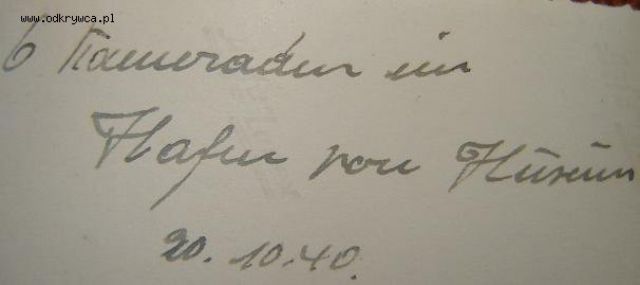 www.odkrywca.pl
6 Kameraden im
Hafen von Husum
20. 10. 40.